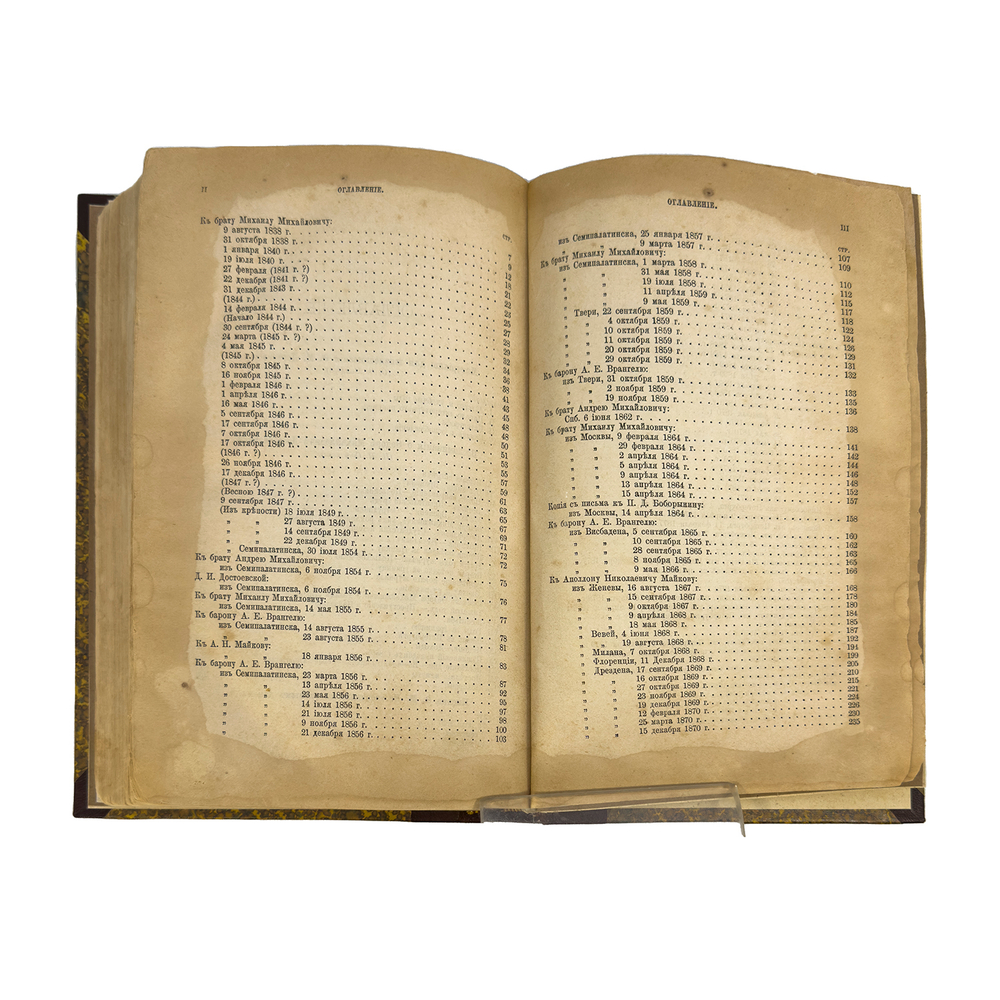 II
ОГЛАВЛЕНІЕ.
СТР.
Къ брату Михаилу Михайловичу:
9 августа 1838 г. 7
31 октября 1838 г. 9
1 января 1840 г. 12
19 іюля 1840 г. 18
27 февраля (1841 г. ?) 21
22 декабря (1841 г. ?) 22
31 декабря 1843 г. 23
(1844 г.) 25
14 февраля 1844 г. 27
(Начало 1844 г.) 28
30 сентября (1844 г. ?) 29
24 марта (1845 г. ?) 32
4 мая 1845 г. 34
(1845 г.) 36
8 октября 1845 г. 38
16 ноября 1845 г. 41
1 февраля 1846 г. 43
1 апрѣля 1846 г. 45
16 мая 1846 г. 48
5 сентября 1846 г. 48
17 сентября 1846 г. 50
7 октября 1846 г. 51
17 октября 1846 г. 53
(1846 г. ?) 55
26 ноября 1846 г. 57
17 декабря 1846 г. 59
(1847 г. ?) 61
(Весною 1847 г. ?) 63
9 сентября 1847 г. 65
(Изъ крѣпости) 18 іюля 1849 г. 67
„ „ 27 августа 1849 г. 69
„ „ 14 сентября 1849 г. 71
„ „ 22 декабря 1849 г. 72
„ Семипалатинска, 30 іюля 1854 г. 72
Къ брату Андрею Михайловичу:
изъ Семипалатинска, 6 ноября 1854 г. 75
Д. И. Достоевской:
изъ Семипалатинска, 6 ноября 1854 г. 76
Къ брату Михаилу Михайловичу:
изъ Семипалатинска, 14 мая 1855 г. 77
Къ барону А. Е. Врангелю:
изъ Семипалатинска, 14 августа 1855 г. 78
„ „ 23 августа 1855 г. 81
Къ А. Н. Майкову:
„ „ 18 января 1856 г. 83
Къ барону А. Е. Врангелю:
изъ Семипалатинска, 23 марта 1856 г. 87
„ „ 13 апрѣля 1856 г. 92
„ „ 23 мая 1856 г. 95
„ „ 14 іюля 1856 г. 97
„ „ 21 іюля 1856 г. 98
„ „ 9 ноября 1856 г. 100
„ „ 21 декабря 1856 г. 103
ОГЛАВЛЕНІЕ.
III
СТР.
изъ Семипалатинска, 25 января 1857 г. 107
„ „ 9 марта 1857 г. 109
Къ брату Михаилу Михайловичу:
изъ Семипалатинска, 1 марта 1858 г. 110
„ „ 31 мая 1858 г. 112
„ „ 19 іюля 1858 г. 115
„ „ 11 апрѣля 1859 г. 117
„ „ 9 мая 1859 г. 118
„ Твери, 22 сентября 1859 г. 122
„ „ 4 октября 1859 г. 124
„ „ 10 октября 1859 г. 126
„ „ 11 октября 1859 г. 129
„ „ 20 октября 1859 г. 131
„ „ 29 октября 1859 г. 132
Къ барону А. Е. Врангелю:
изъ Твери, 31 октября 1859 г. 133
„ „ 2 ноября 1859 г. 135
„ „ 19 ноября 1859 г. 136
Къ брату Андрею Михайловичу:
Спб. 6 іюня 1862 г. 138
Къ брату Михаилу Михайловичу:
изъ Москвы, 9 февраля 1864 г. 142
„ „ 29 февраля 1864 г. 144
„ „ 2 апрѣля 1864 г. 146
„ „ 5 апрѣля 1864 г. 148
„ „ 9 апрѣля 1864 г. 152
„ „ 13 апрѣля 1864 г.
„ „ 15 апрѣля 1864 г. 157
Копія съ письма къ П. Д. Боборыкину:
изъ Москвы, 14 апрѣля 1864 г. 158
Къ барону А. Е. Врангелю:
изъ Висбадена, 5 сентября 1865 г. 160
„ „ 10 сентября 1865 г. 162
„ „ 28 сентября 1865 г. 163
„ „ 8 ноября 1865 г. 165
„ „ 9 мая 1866 г. 166
Къ Аполлону Николаевичу Майкову:
изъ Женевы, 16 августа 1867 г. 168
„ „ 15 сентября 1867 г. 178
„ „ 9 октября 1867 г. 180
„ „ 9 апрѣля 1868 г. 184
„ „ 18 мая 1868 г. 185
„ Вевей, 4 іюня 1868 г. 187
„ „ 19 августа 1868 г. 192
„ Милана, 7 октября 1868 г. 194
„ Флоренціи, 11 Декабря 1868 г. 199
„ Дрездена, 17 сентября 1869 г. 205
„ „ 16 октября 1869 г. 210
„ „ 27 октября 1869 г. 215
„ „ 23 ноября 1869 г. 221
„ „ 19 декабря 1869 г. 224
„ „ 12 февраля 1870 г. 226
„ „ 25 марта 1870 г. 230
„ „ 15 декабря 1870 г. 235